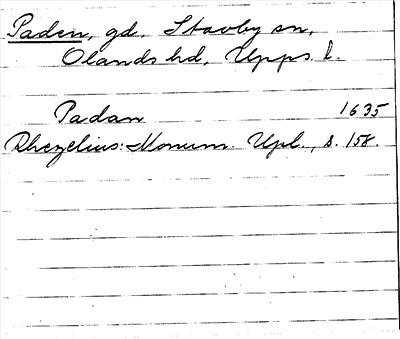 Paden, gd, Stavby sn,
Olands hd, Upps. l.
Padan 1635
Rhezelius: Monum. Upl., s. 158.